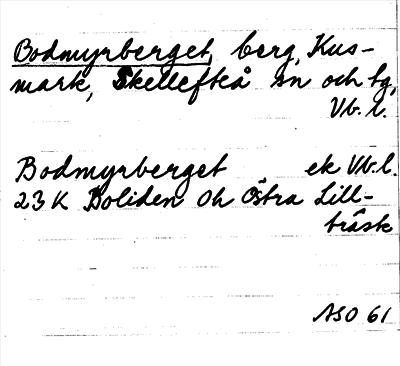 Bodmyrberget, berg, Kus-
mark, Skellefteå sn och tg,
Vb. l.
Bodmyrberget ek Vb. l.
23 K Boliden 0h Östra Lill-
träsk
ASO 61